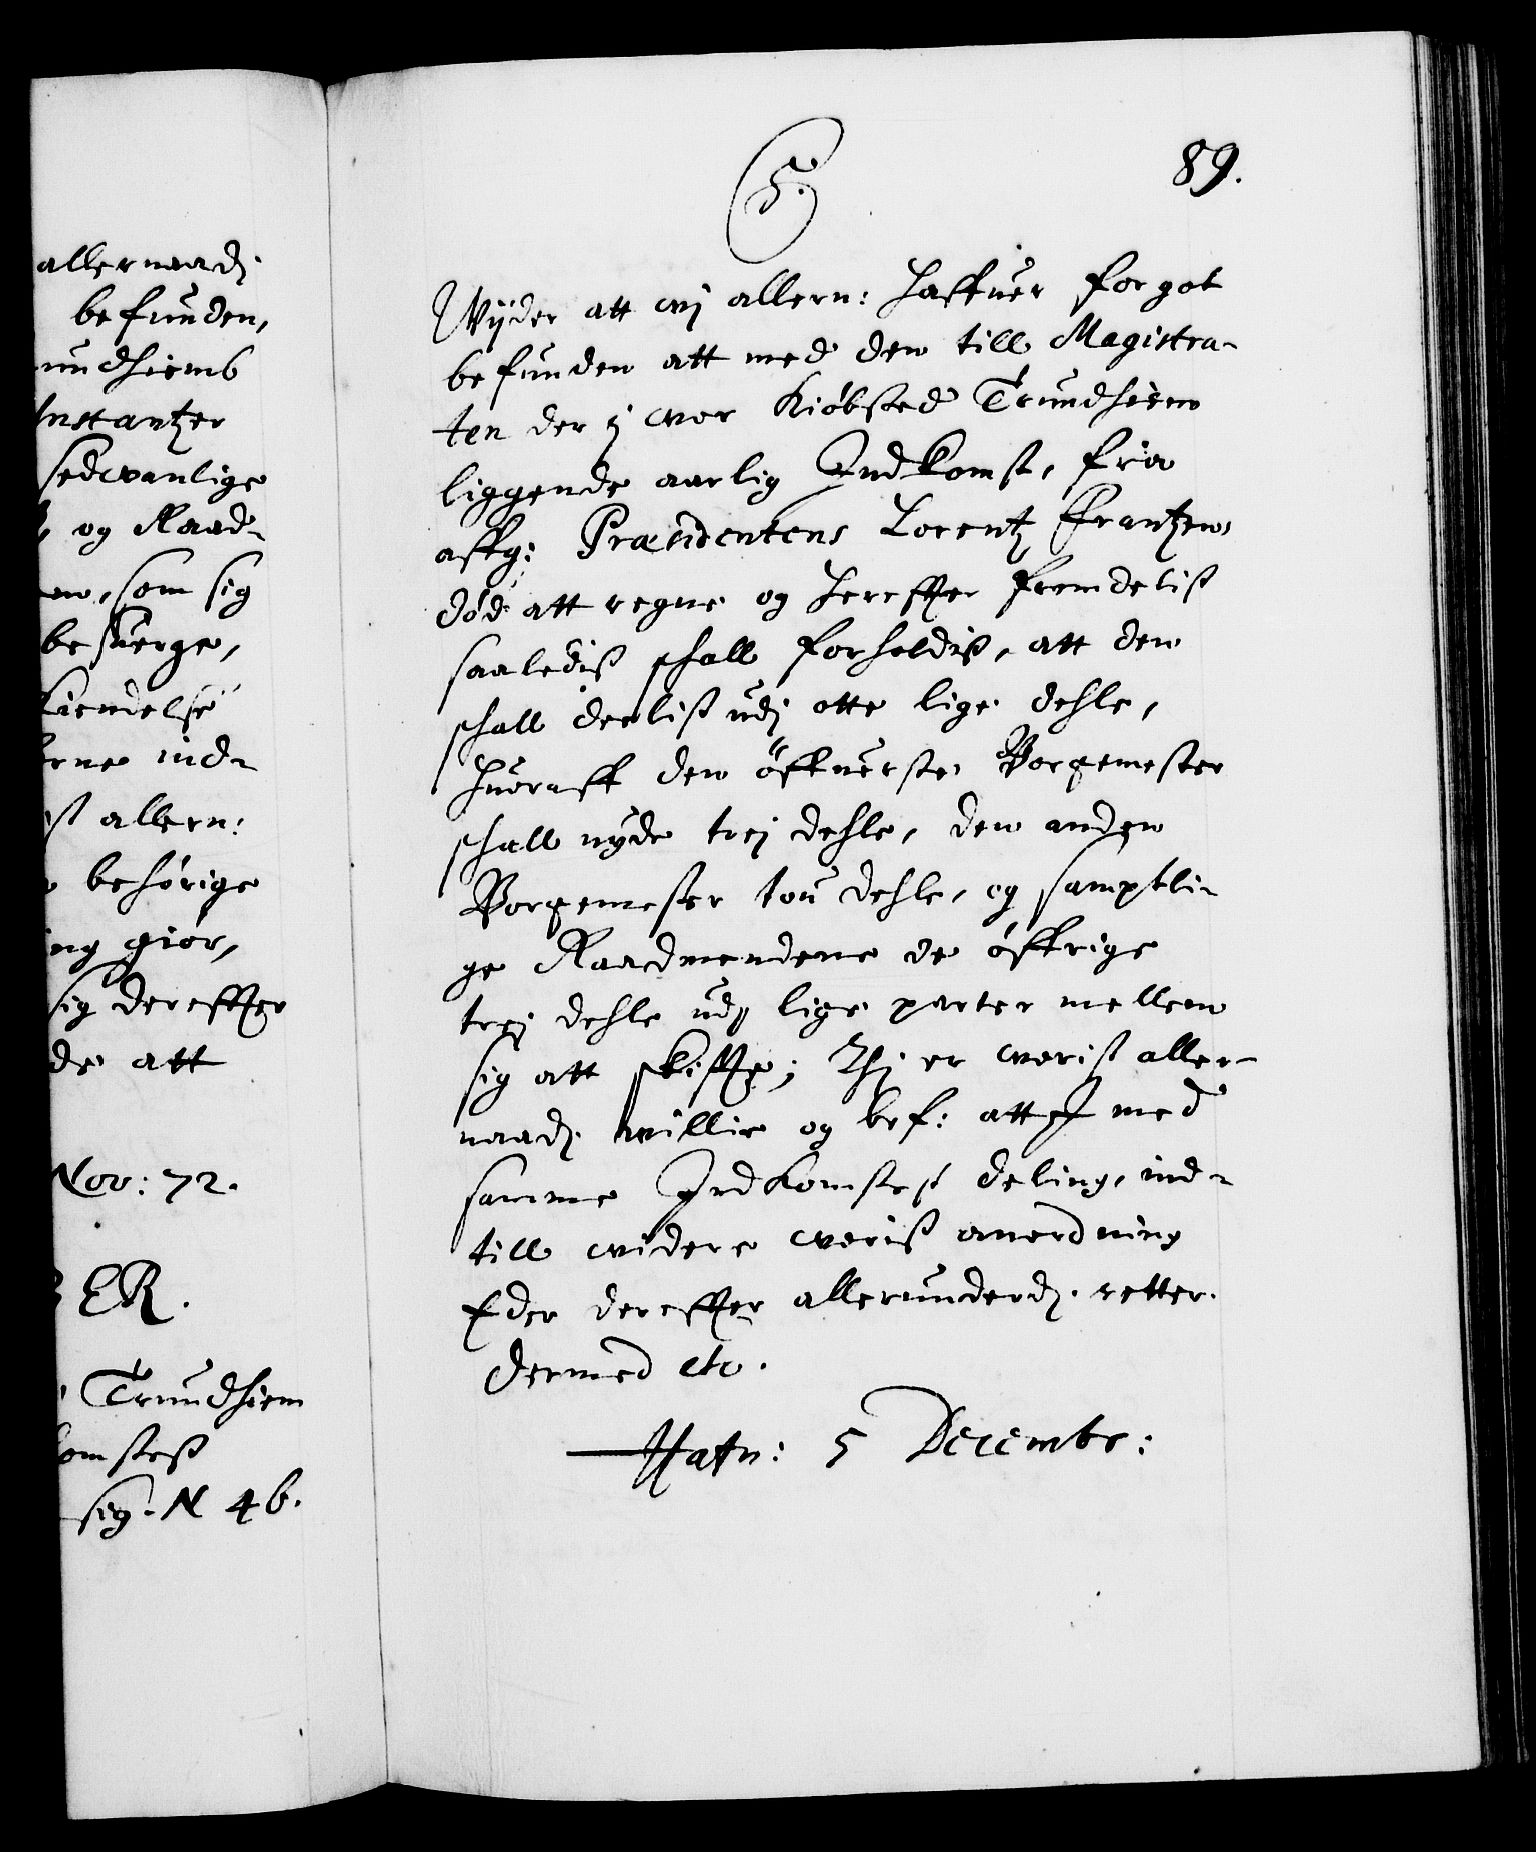 allernaadj.
befunden,
undhiemb
Instantzer
sedvanlige
og Raad-
en, som sig
besverge,
kiendelse
erne ind-
st allern:
behörige
ing giör,
sig derefter
de att
Nov: 72.
ER.
Trundhiem
komsteß
sig. N 46.
89.
5.
Wijder att wj allern: haffuer for got
befunden att med den till Magistra-
ten der j vor Kiöbsted Trundhiem
liggende aarlig Indkomst, fra
affg: Præsidentens Lorentz Frantzens
död att regne og hereffter fremdeliß
saalediß schall forholdiß, att den
schall deeliß udj otte lige dehle,
huoraff den öffuerste Borgemester
schall nyde trej dehle, den anden
Borgemester tou dehle, og samptli-
ge Raadmendene de öffrige
trej dehle udj lige parter mellem
sig att skiffte; Thj er voriß aller-
naadj. willie og bef: att I med
samme Indkomsteß deling, ind-
till widere woriß anordning
Eder dereffter allerunderdj. retter.
Dermed etc.
Hafn: 5 Decembr: